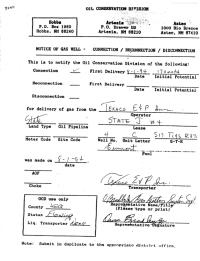 OIL CONSERVATION DIVISION
Hobbs
P.O. Box 1980
Hobbs, NM 88240
Artesia
P.O. Drawer DD
Artesia, NM 88210
Aztec
1000 Rio Brazos
Aztec, NM 87410
NOTICE OF GAS WELL - CONNECTION / RECONNECTION / DISCONNECTION
This is to notify the Oil Conservation Division of the following:
Connection First Delivery
Date Initial Potential
Reconnection First Delivery
Date Initial Potential
Disconnection
for delivery of gas from the Texaco E+P Inc
Operator
State STATE
Land Type Oil Pipeline Lease
4 C
Meter Code Site Code Well No. Unit Letter S-T-R
Eumont
Pool
was made on
date
AOF
Choke
Texaco E+P Inc
Transporter
OCD use only
County
Status Flowing
Liq. Transporter
Representative Name/Title
(Please type or print)
Representative Signature
Note: Submit in duplicate to the appropriate district office.